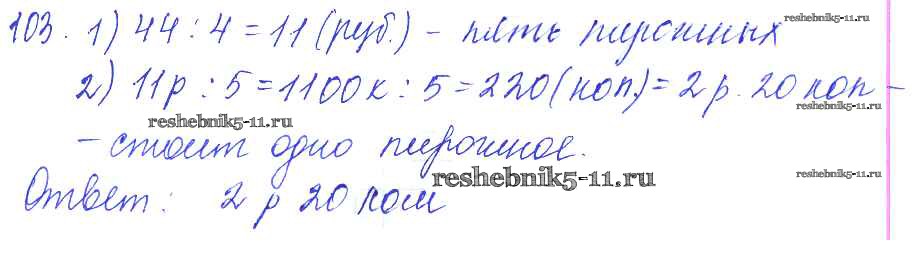 103. 1) 44 : 4 = 11 (руб.) - пять пирожных
reshebnik5-11.ru
2) 11р : 5 = 1100к : 5 = 220 (коп.) = 2р. 20 коп -
reshebnik5-11.ru
reshebnik5-11.ru
- стоит одно пирожное.
Ответ: 2 р 20 коп
reshebnik5-11.ru
reshebnik5-11.ru